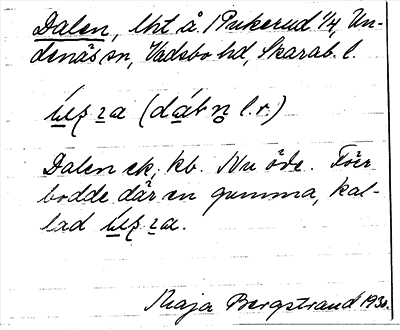 Dalen, lht å Pukerud 1/4, Un-
denäs sn, Vadsbo hd, Skarab. l.
(dát l. r.)
Dalen ek, kb. Nu öde. Förr
bodde där en gumma, kal-
lad
Maja Bergstrand 1930.